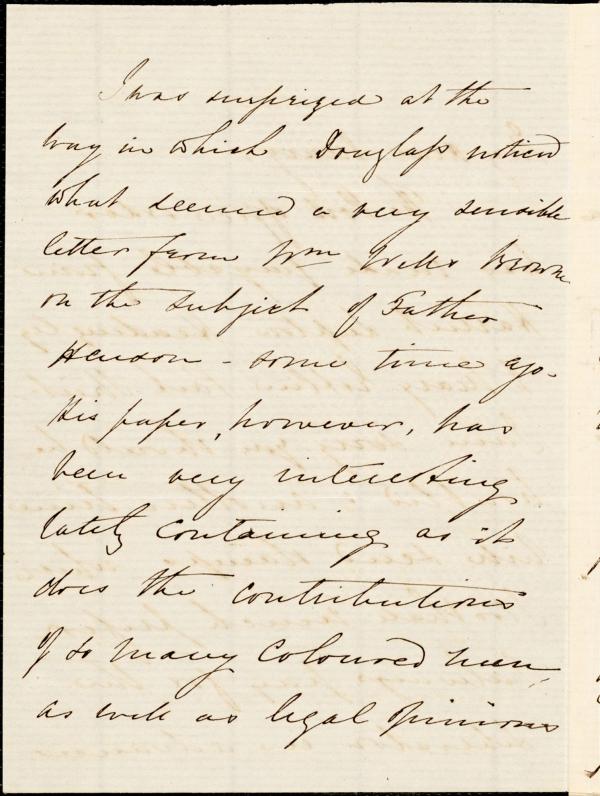 I was surprized at the
way in which Douglass noticed
what seemed a very sensible
letter from Wm Wells Brown
on the subject of Father
Henson - some time ago.
His paper, however, has
been very interesting
lately containing as it
does the contributions
of so many coloured men
as well as legal opinions